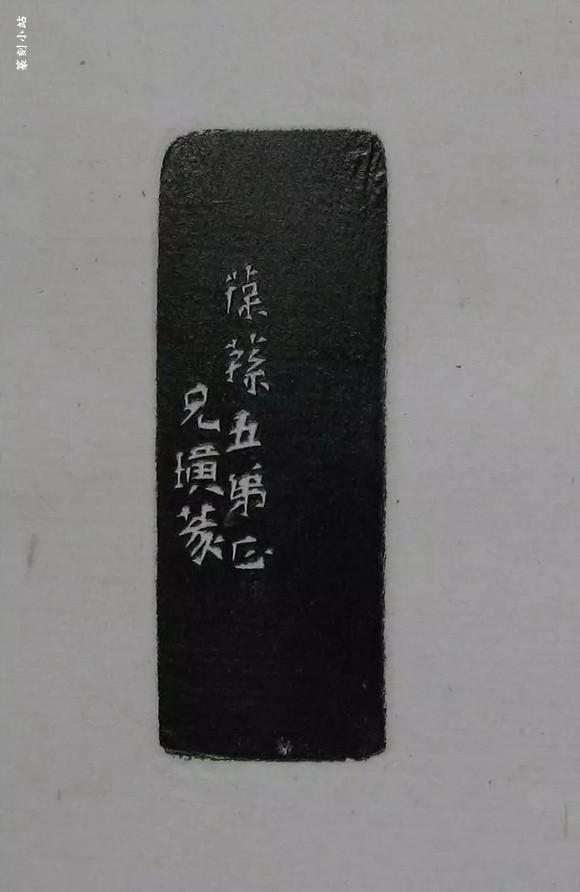 篆刻小站
葆蓀五弟正
兄璜篆